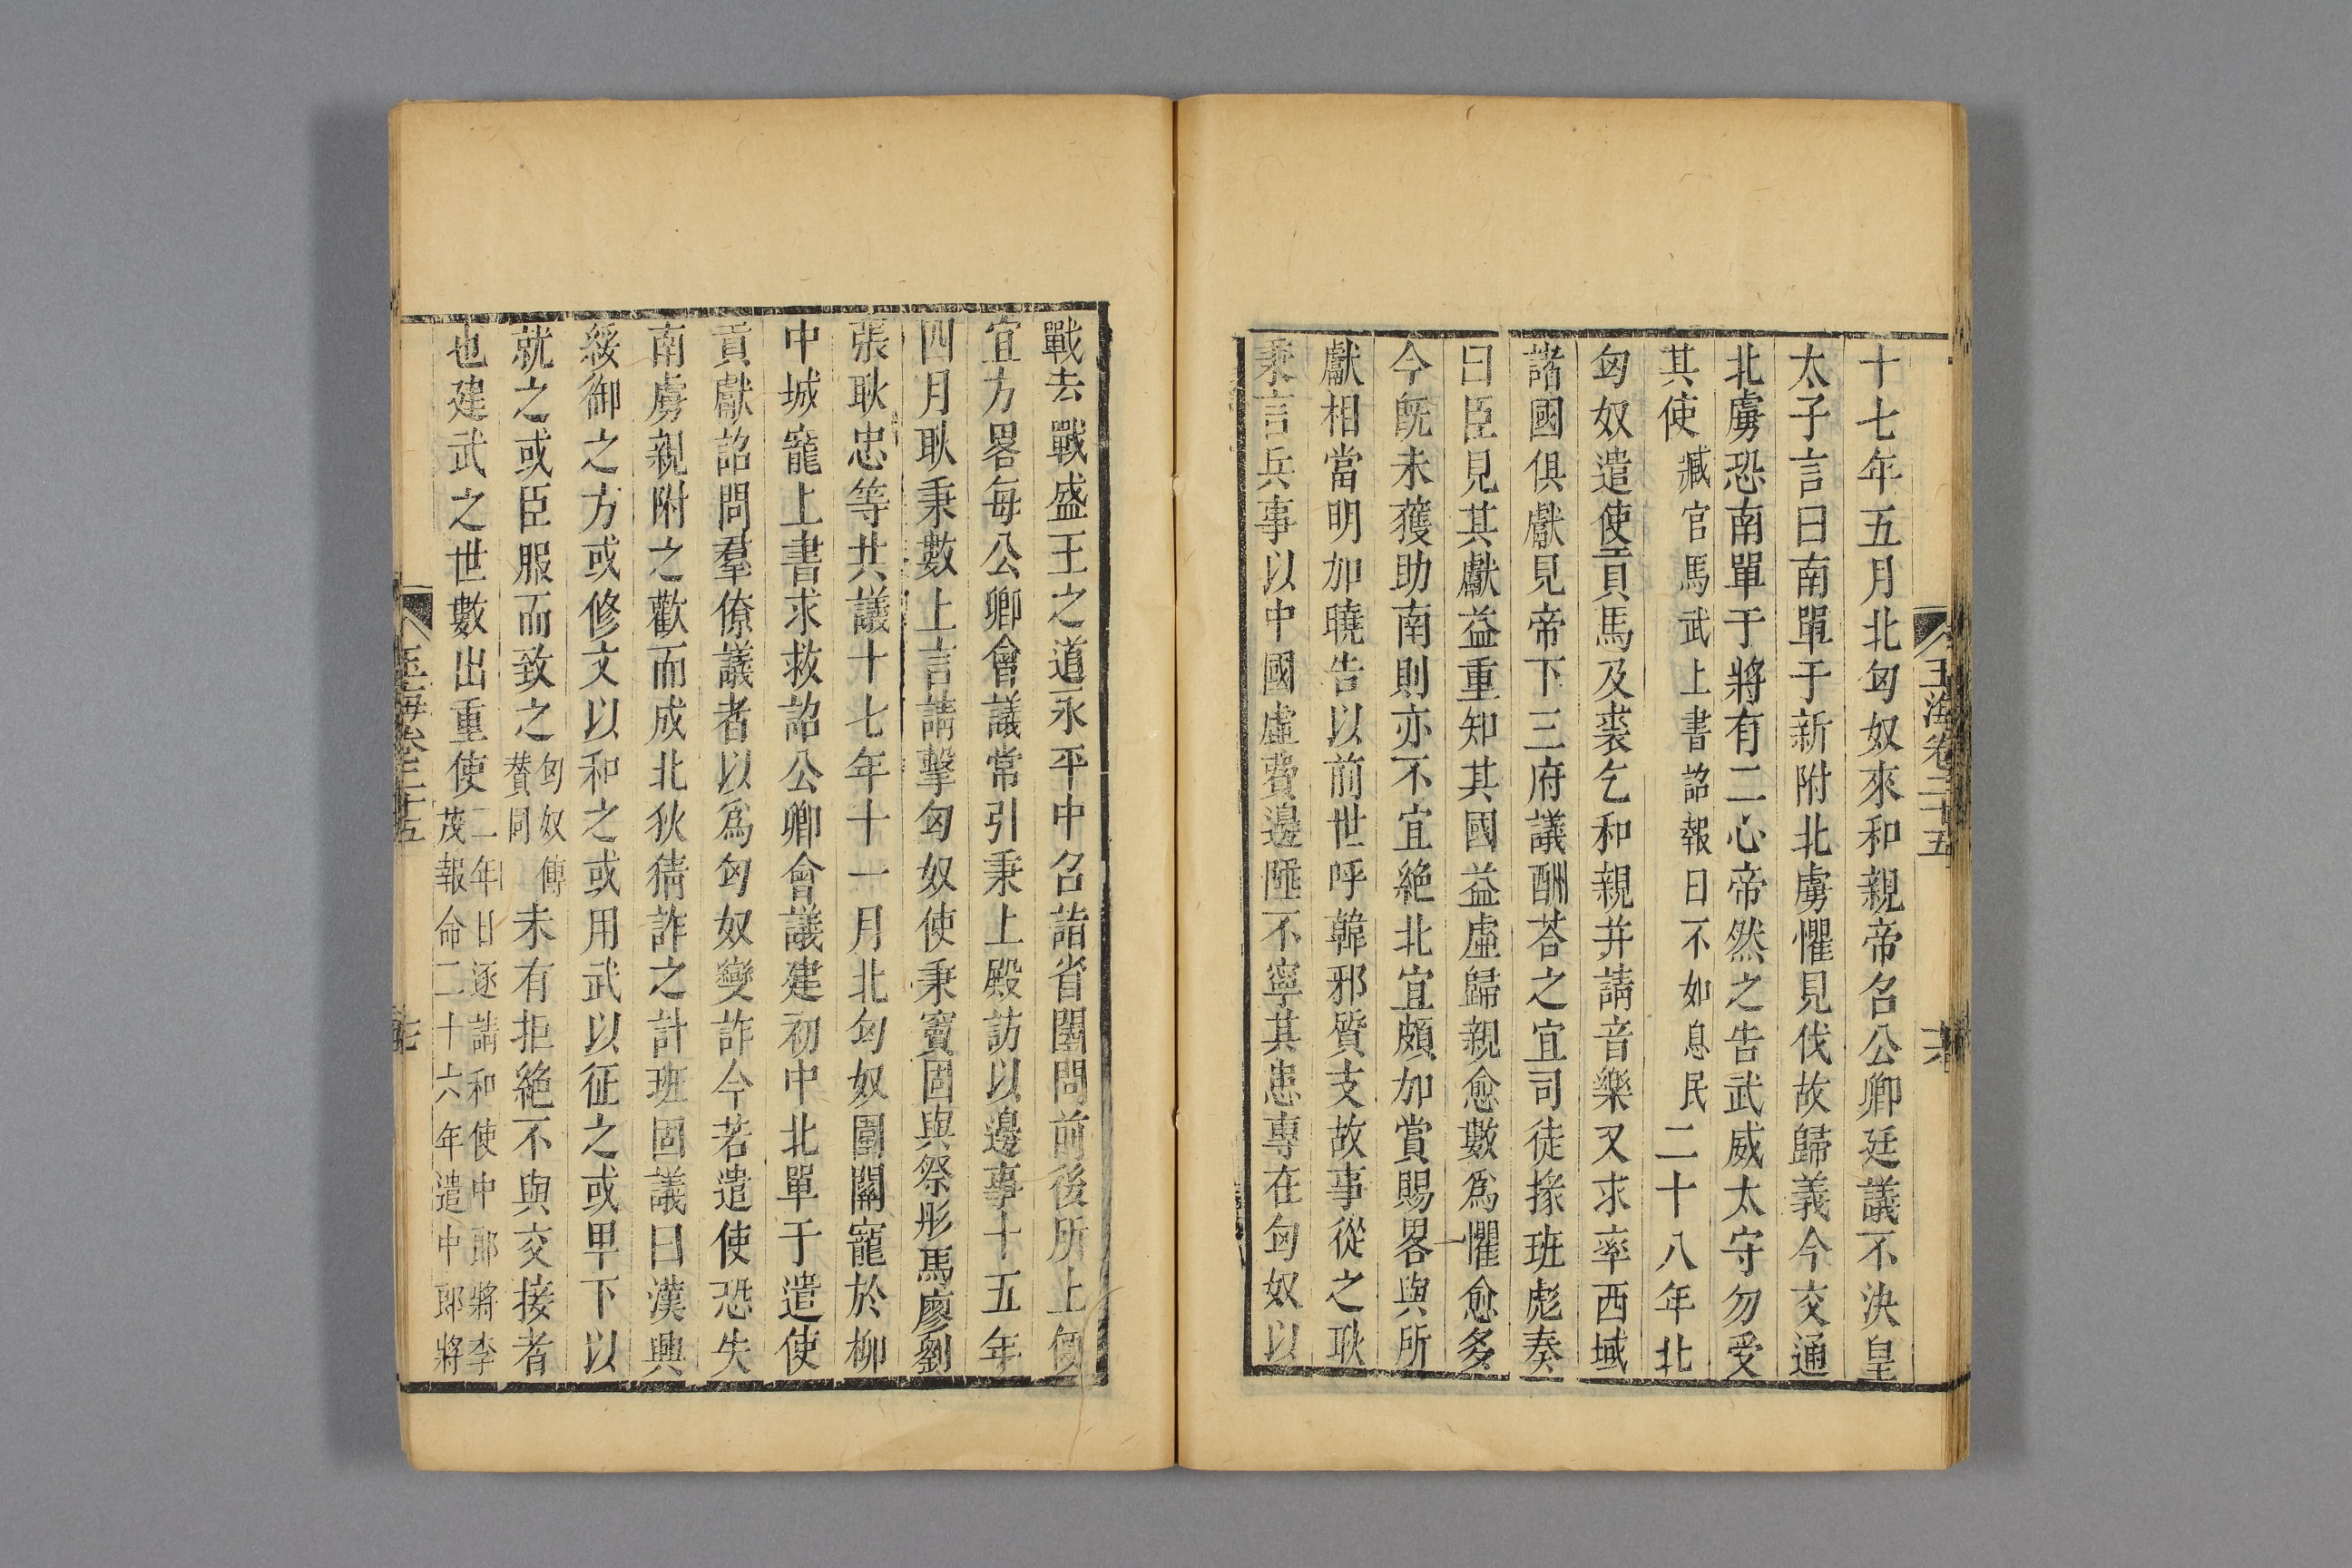 玉海卷二十五
十七年五月北匈奴來和親帝名公卿廷議不決皇
太子言曰南單于新附北虜懼見伐故歸義今交通
北虜恐南單于將有二心帝然之告武威太守勿受
其使臧官馬武上書詔報曰不如息民二十八年北
匈奴遣使貢馬及裘乞和親并請音樂又求率西域
諸國俱獻見帝下三府議酬荅之宜司徒掾班彪奏
曰臣見其獻益重知其國益虛歸親愈數爲懼愈多
今既未獲助南則亦不宜絶北宜頗加賞賜畧與所
獻相當明加曉告以前世呼韓邪郅支故事從之耿
秉言兵事以中國虛費邊陲不寧其患專在匈奴以
戰去戰盛王之道永平中名詣省闥問前後所上便
宜方畧每公卿會議常引秉上殿訪以邊事十五年
四月耿秉數上言請擊匈奴使秉竇固與祭肜馬廖劉
張耿忠等共議十七年十一月北匈奴圍關寵於柳
中城寵上書求救詔公卿會議建初中北單于遣使
貢獻詔問羣僚議者以爲匈奴變詐今若遣使恐失
南虜親附之歡而成北狄猜詐之計班固議曰漢興
綏御之方或修文以和之或用武以征之或卑下以
就之或臣服而致之匈奴傳
贊同
未有拒絶不與交接者
也建武之世數出重使二年日逐請和使中郎將李
茂報命二十六年遣中郎將
玉海卷二十五
十七